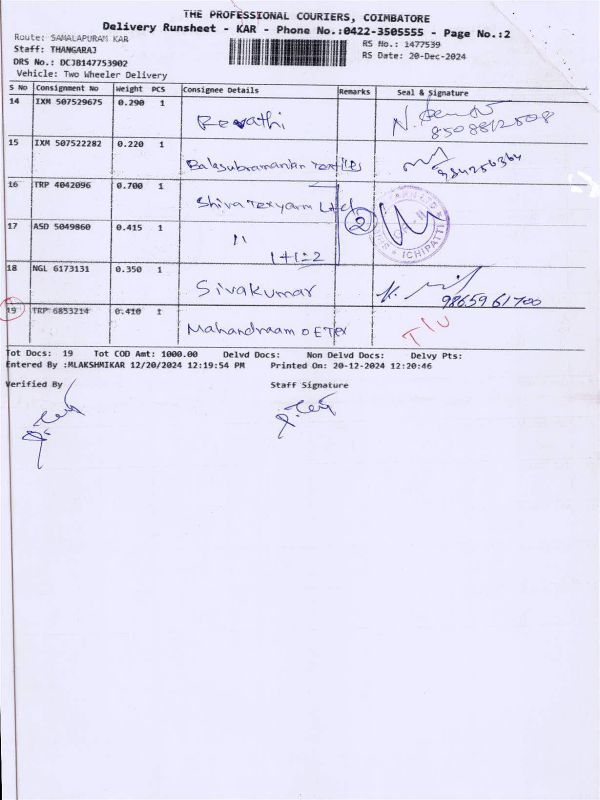 THE PROFESSIONAL COURIERS, COIMBATORE
Delivery Runsheet - KAR - Phone No.:0422-3505555 - Page No.:2
Route: SAMALAPURAM KAR
RS No.: 1477539
Staff: THANGARAJ
RS Date: 20-Dec-2024
DRS No.: DCJB147753902
Vehicle: Two Wheeler Delivery
S No Consignment No Weight PCS Consignee Details Remarks Seal & Signature
14 IXM 507529675 0.290 1 Revathi
15 IXM 507522282 0.220 1 Balasubramanian Textiles
16 TRP 4042096 0.700 1 Shiva Texyarn Ltd 2
17 ASD 5049860 0.415 1 "
1+1=2
18 NGL 6173131 0.350 1 Sivakumar 9865961700
19 TRP 6853214 0.410 1
Tot Docs: 19 Tot COD Amt: 1000.00 Delvd Docs: Non Delvd Docs: Delvy Pts:
Entered By :MLAKSHMIKAR 12/20/2024 12:19:54 PM Printed On: 20-12-2024 12:20:46
Verified By Staff Signature